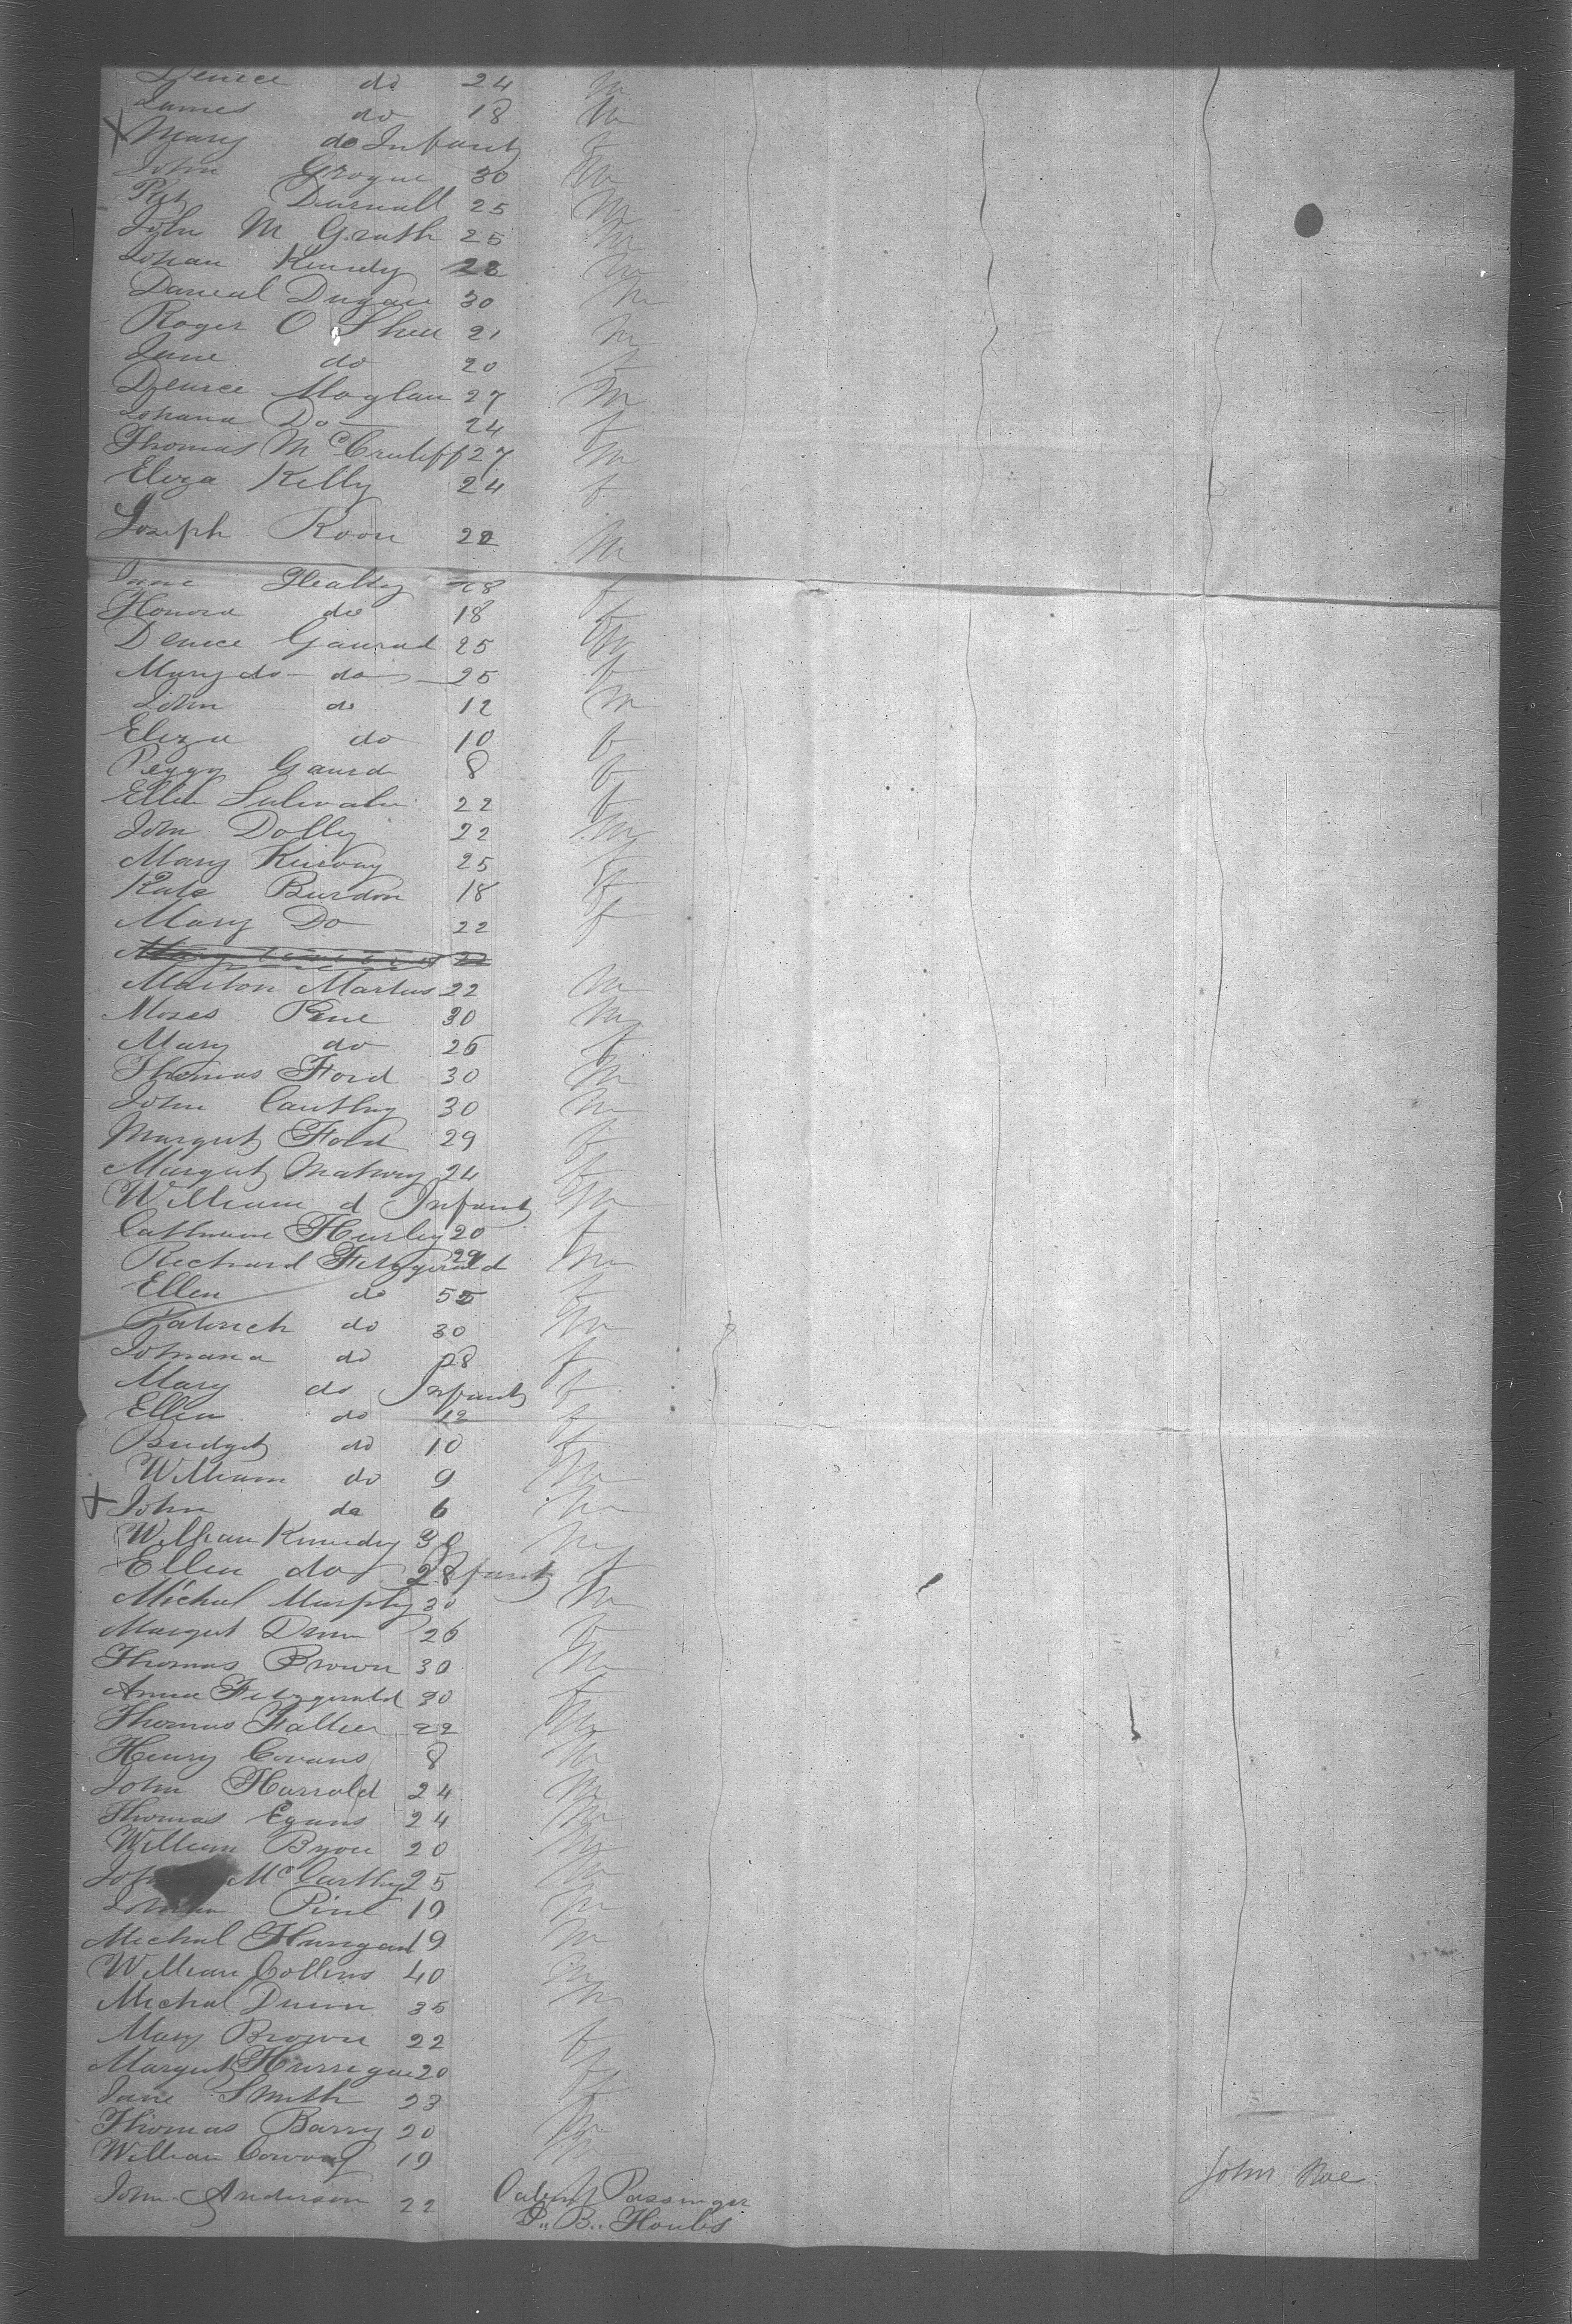 Denice do 24 m
James do 18 m
X Mary do Infant f
John Grogue 30 m
Pat Darnall 25 m
John M Grath 25 m
Johan Kennedy 22 m
Daneal Dugan 30 m
Roger O Shea 21 m
Jane do 20 f
Denice Moglan 27 m
Johana Do 24 f
Thomas Mc Cruliff 27 m
Eliza Kelly 24 f
Joseph Roon 22 m
Jane Healy 28 f
Honora do 18 f
Denice Gaurad 25 m
Mary do do 25 f
John do 12 m
Eliza do 10 f
Peggy Gaurd 8 f
Ellen Sulivahn 22 f
John Dolly 22 m
Mary Kurvay 25 f
Kate Burdon 18 f
Mary Do 22 f
Marton Martus 22 m
Moses Pine 30 m
Mary do 26 f
Thomas Ford 30 m
John Cauthy 30 m
Margut Ford 29 f
Margut Mahony 24 f
William d Infant m
Cathrine Hurley 20 f
Richard Fitzgerald 29 m
Ellen do 55 f
Patrick do 30 m
Johana do 28 f
Mary do Infant f
Ellen do 12 f
Bridget do 10 f
William do 9 m
+ John do 6 m
William Kennedy 30 m
Ellen do 28 Infant f
Michal Murphy 30 m
Margut Dunn 26 f
Thomas Brown 30 m
Anna Fitzgerald 20 f
Thomas Fallen 22 m
Henry Covans 8 m
John Harrold 24 m
Thomas Egans 24 m
William Byou 20 m
John McCarthy 25 m
Pine 19 m
Michal Hangan 19 m
William Collins 40 m
Michal Dunn 35 m
Mary Brown 22 f
Margut Harrigan 20 f
Jane Smith 23 f
Thomas Barry 20 m
William Conway 19 m
John Noe
John Anderson 22 Cabin Passinger
P.. B.. Hoults